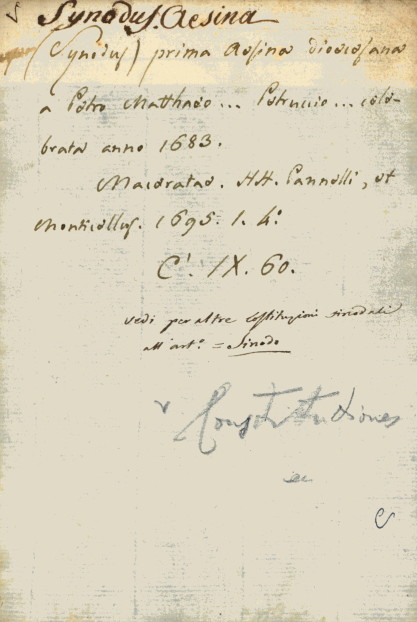 Synodus. Aesina
(Synodus) prima Aesina dioecesana
a Petro Matthaeo ... Petruccio ... cele-
brata anno 1683.
Maceratae. HH. Pannelli, et
Monticellus. 1695. 1. 4.º
C'. IX. 60.
vedi per altre costituzioni sinodali
all'art.º = Sinodo
v Constitutiones